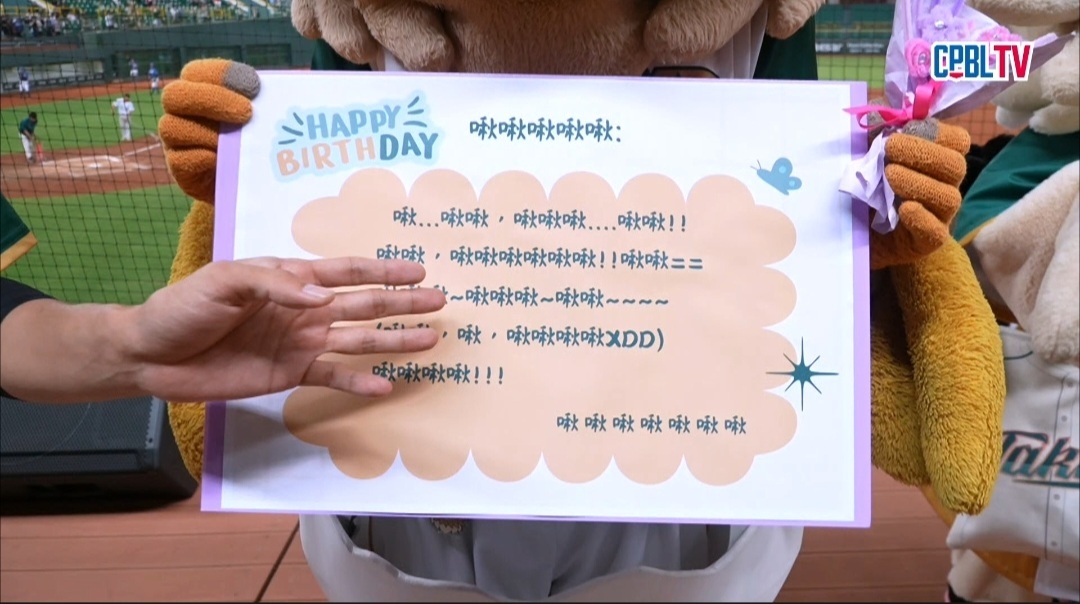 CPBLTV
HAPPY
BIRTHDAY
啾啾啾啾啾啾:
啾...啾啾，啾啾啾....啾啾!!
啾啾，啾啾啾啾啾啾!!啾啾==
啾~啾啾啾~啾啾~~~~
啾，啾，啾啾啾啾XDD)
啾啾啾啾!!!
啾 啾 啾 啾 啾 啾 啾